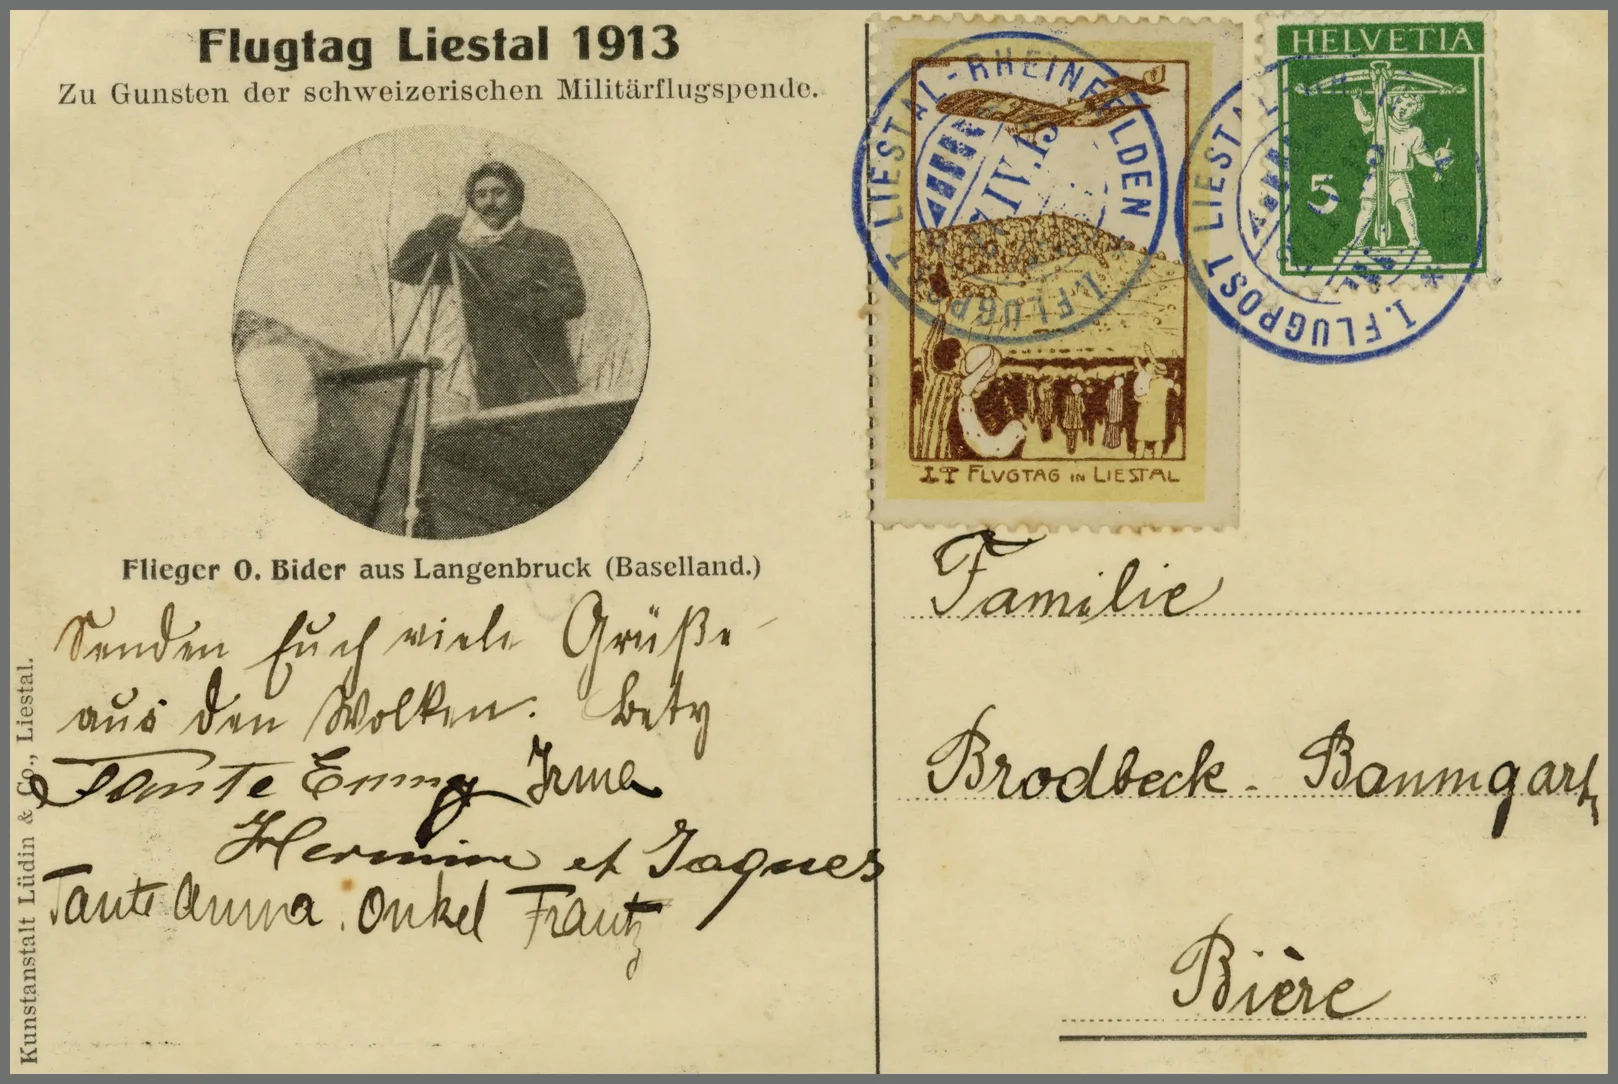 Flugtag Liestal 1913
Zu Gunsten der schweizerischen Militärflugspende.
Flieger O. Bider aus Langenbruck (Baselland.)
Senden Euch viele Grüße
aus den Wolken. Bety
Tante Emmy Irma
Hermine et Jaques
Tante Anna. Onkel Frantz
Kunstanstalt Lüdin & Co., Liestal.
LIESTAL-RHEINFELDEN
IV.13
I. FLUGPOST
FLVGTAG IN LIESTAL
HELVETIA
5
LIESTAL
I. FLUGPOST
Familie
Brodbeck - Baumgart
Bière